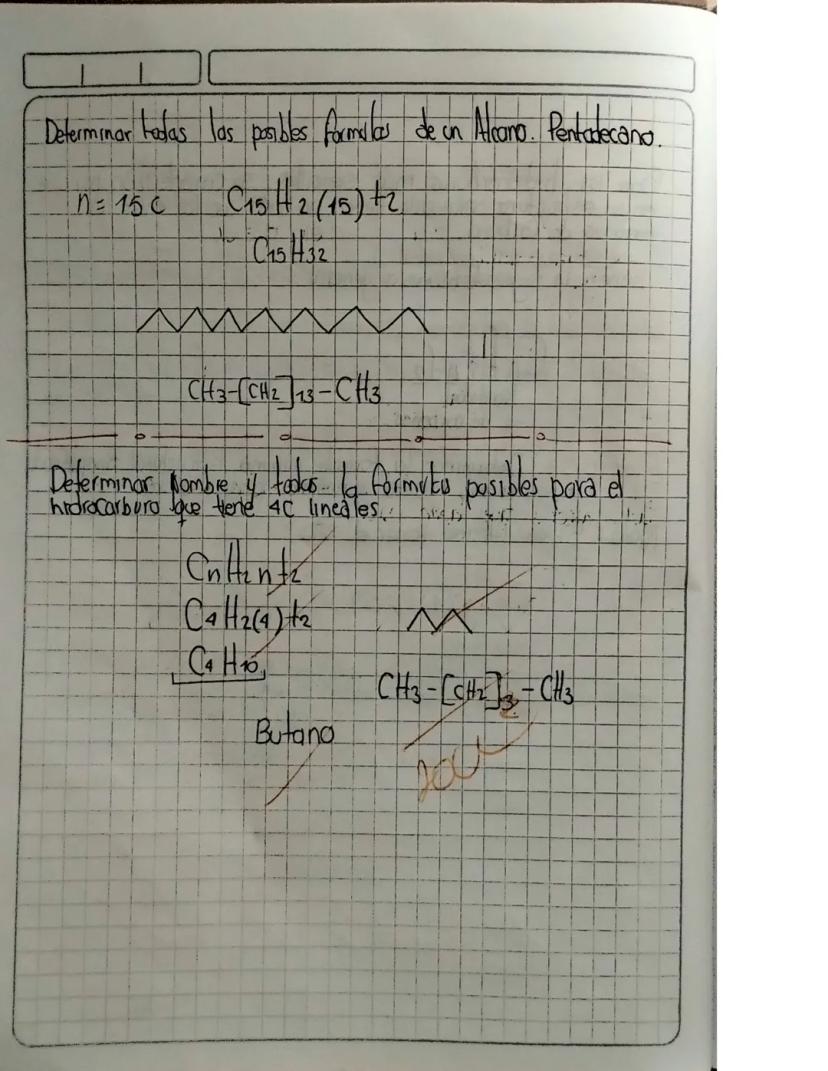 Determinar todas las posibles formulas de un Alcano. Pentadecano.
n = 15 C C15H2(15)+2
C15H32
CH3-[CH2]13-CH3
Determinar Nombre y todas la formulas posibles para el
hidrocarburo que tiene 4C lineales.
CnH2n+2
C4H2(4)+2
C4H10
CH3-[CH2]2-CH3
Butano